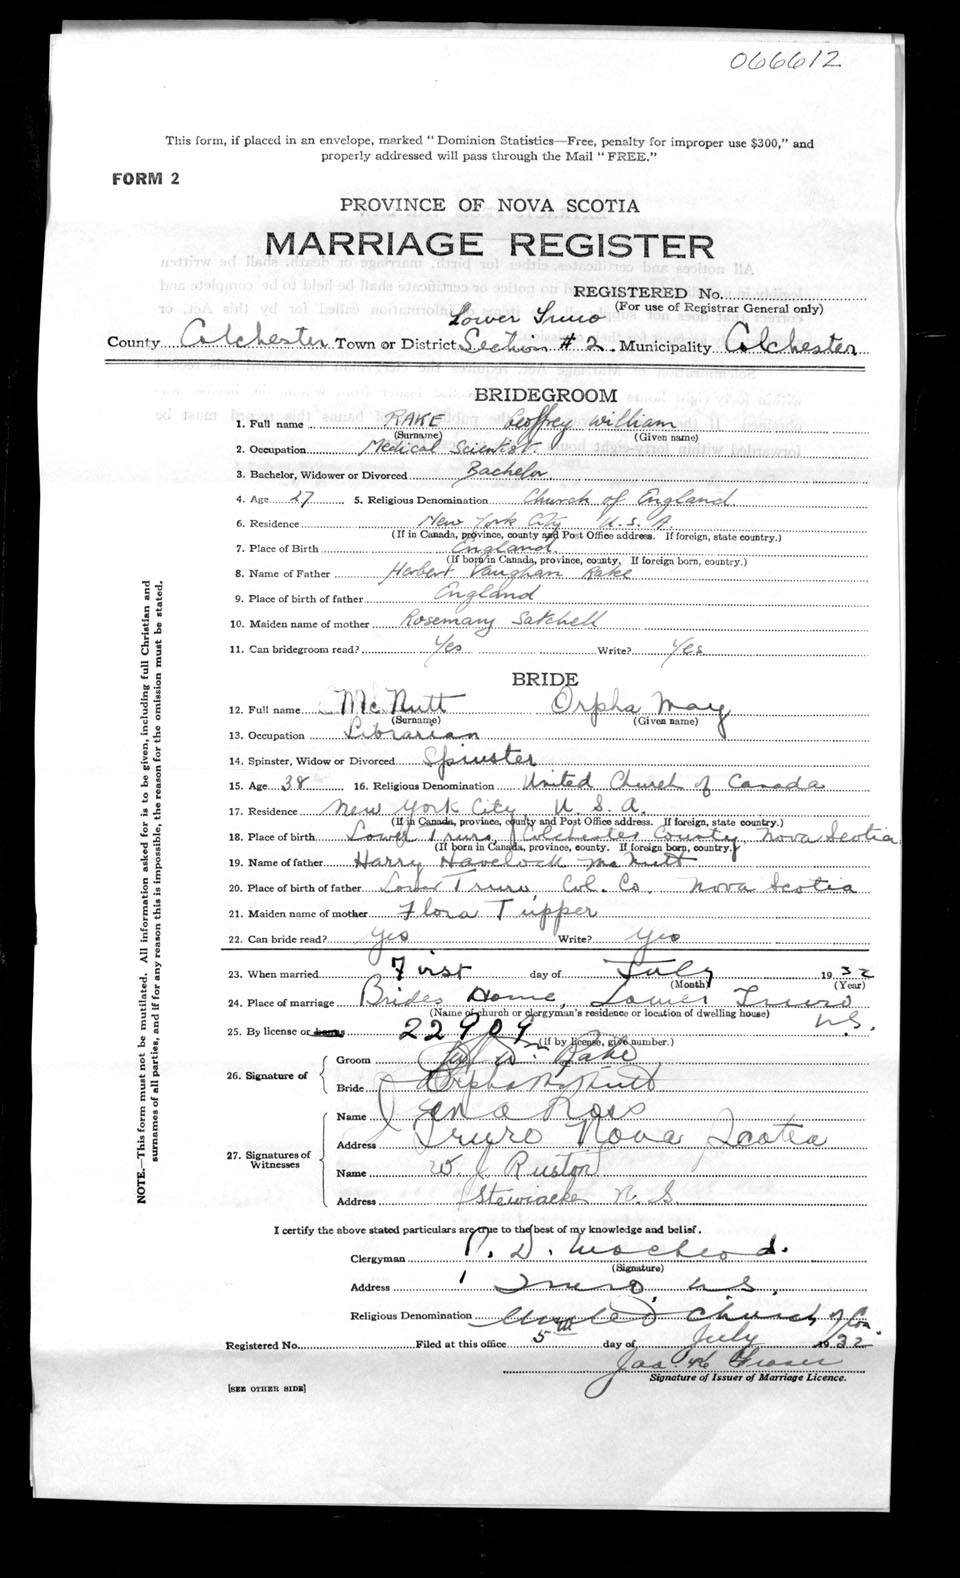 066612
This form, if placed in an envelope, marked "Dominion Statistics—Free, penalty for improper use $300," and
properly addressed will pass through the Mail "FREE."
FORM 2
PROVINCE OF NOVA SCOTIA
MARRIAGE REGISTER
REGISTERED No.
(For use of Registrar General only)
Lower Truro
County Colchester Town or District Section #2 Municipality Colchester
BRIDEGROOM
1. Full name RAKE Geoffrey William
(Surname) (Given name)
2. Occupation Medical Scientist.
3. Bachelor, Widower or Divorced Bachelor
4. Age 27 5. Religious Denomination Church of England
6. Residence New York City U.S.A.
(If in Canada, province, county and Post Office address. If foreign, state country.)
7. Place of Birth England.
(If born in Canada, province, county, If foreign born, country.)
8. Name of Father Herbert Vaughan Rake
9. Place of birth of father England
10. Maiden name of mother Rosemary Satchell
11. Can bridegroom read? Yes Write? Yes
BRIDE
12. Full name McNutt Orpha May
(Surname) (Given name)
13. Occupation Librarian
14. Spinster, Widow or Divorced Spinster
15. Age 38 16. Religious Denomination United Church of Canada
17. Residence New York City U.S.A.
(If in Canada, province, county and Post Office address. If foreign, state country.)
18. Place of birth Lower Truro, Colchester County Nova Scotia
(If born in Canada, province, county. If foreign born, country.)
19. Name of father Harry Havelock McNutt
20. Place of birth of father Lower Truro Col. Co. Nova Scotia
21. Maiden name of mother Flora Tupper
22. Can bride read? Yes Write? Yes
23. When married First day of July 1932
(Month) (Year)
24. Place of marriage Brides Home, Lower Truro
(Name of church or clergyman's residence or location of dwelling house) N.S.
25. By license or banns 22909
(If by license, give number.)
26. Signature of Groom W. Rake
Bride Orpha McNutt
27. Signatures of Witnesses Name Ross
Address Truro Nova Scotia
Name W J Ruston
Address Stewiacke N.S.
I certify the above stated particulars are true to the best of my knowledge and belief.
Clergyman D. MacLeod.
(Signature)
Address Truro, N.S.
Religious Denomination United Church of Can.
Registered No. Filed at this office 5th day of July 1932
Jas. Fraser
Signature of Issuer of Marriage Licence.
[SEE OTHER SIDE]
NOTE.—This form must not be mutilated. All information asked for is to be given, including full Christian and
surnames of all parties, and if for any reason this is impossible, the reason for the omission must be stated.